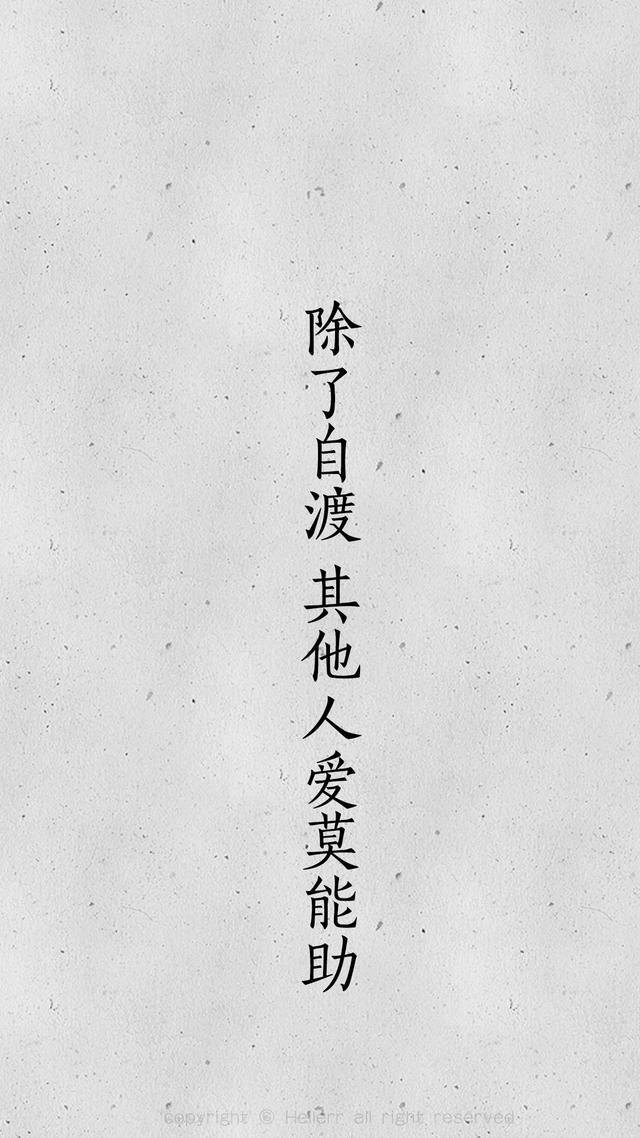 除了自渡 其他人爱莫能助
copyright © Hellerr all right reserved